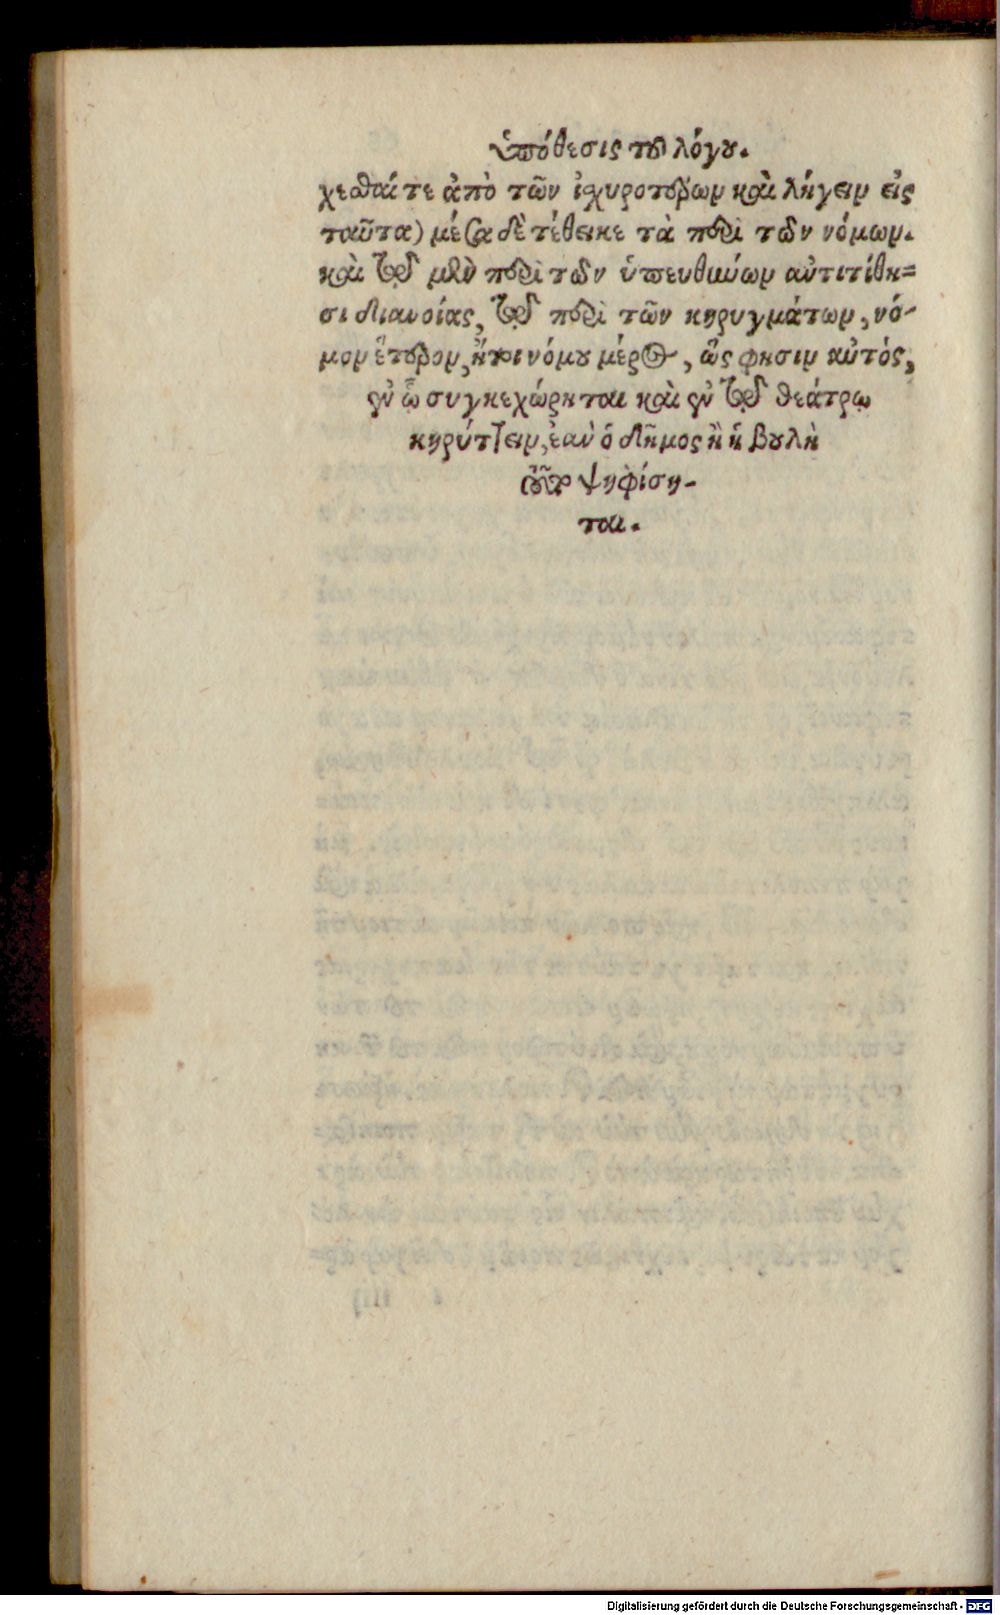 ὑπόθεσις τοῦ λόγου.
χεσθαί τε ἀπὸ τῶν ἰσχυροτέρων καὶ λήγειν εἰς
ταῦτα) μέσα δὲ τέθεικε τὰ περὶ τῶν νόμων.
καὶ τῷ μὲν περὶ τῶν ὑπευθύνων ἀντιτίθη=
σι διανοίας, τῷ περὶ τῶν κηρυγμάτων, νό-
μον ἕτερον, ἤτοι νόμου μέρος, ὥς φησιν αὐτός,
ἐν ᾧ συγκεχώρηται καὶ ἐν τῷ θεάτρῳ
κηρύττειν, ἐὰν ὁ δῆμος ἢ ἡ βουλὴ
τοῦτο ψηφίση-
ται.
Digitalisierung gefördert durch die Deutsche Forschungsgemeinschaft - DFG